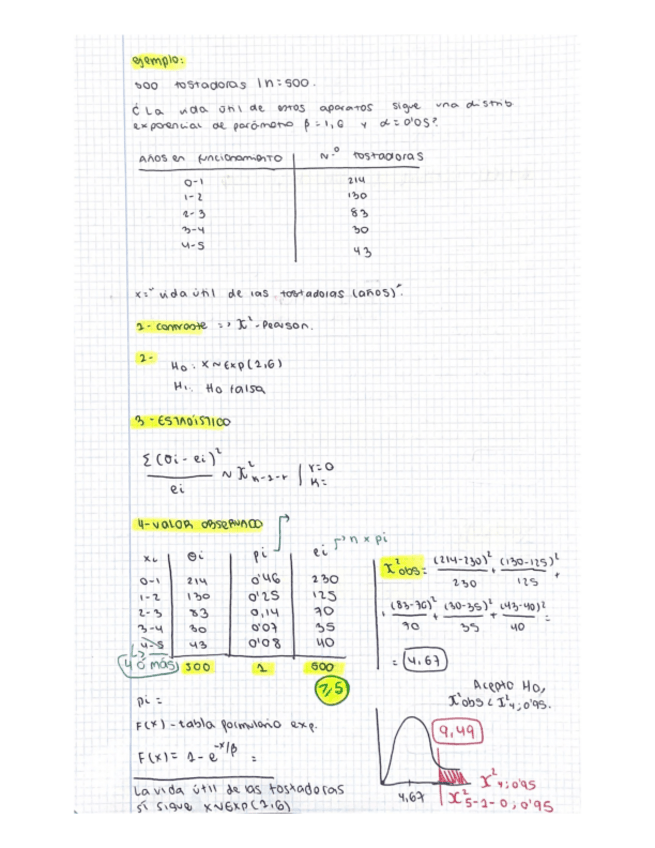 ejemplo:
500 tostadoras | n=500.
¿La vida útil de estos aparatos sigue una distrib
exponencial de parámetro β=1,6 y α=0'05?
Años en funcionamiento | N.º tostadoras
0-1 | 214
1-2 | 130
2-3 | 83
3-4 | 30
4-5 | 43
x="vida útil de las tostadoras (años)".
1- contraste => χ²-Pearson.
2-
H₀: X~Exp(1,6)
H₁: H₀ falsa
3- ESTADÍSTICO
Σ(Oi - ei)² / ei ~ χ²ₖ₋₁₋ᵣ | r=0
k=
4- VALOR OBSERVADO
xi | Oi | pi | ei → n x pi
0-1 | 214 | 0'46 | 230
1-2 | 130 | 0'25 | 125
2-3 | 83 | 0,14 | 70
3-4 | 30 | 0'07 | 35
4-5 | 43 | 0'08 | 40
4 o más | 500 | 1 | 500
≥5
χ²obs = (214-230)²/230 + (130-125)²/125 +
+ (83-70)²/70 + (30-35)²/35 + (43-40)²/40 =
= 4,67
Acepto H₀,
χ²obs < χ²4;0'95.
pi =
F(x) - tabla formulario exp.
F(x) = 1 - e^-x/β =
La vida útil de las tostadoras
sí sigue X~Exp(1,6)
9,49
4,67
χ²4;0'95
χ²5-1-0;0'95